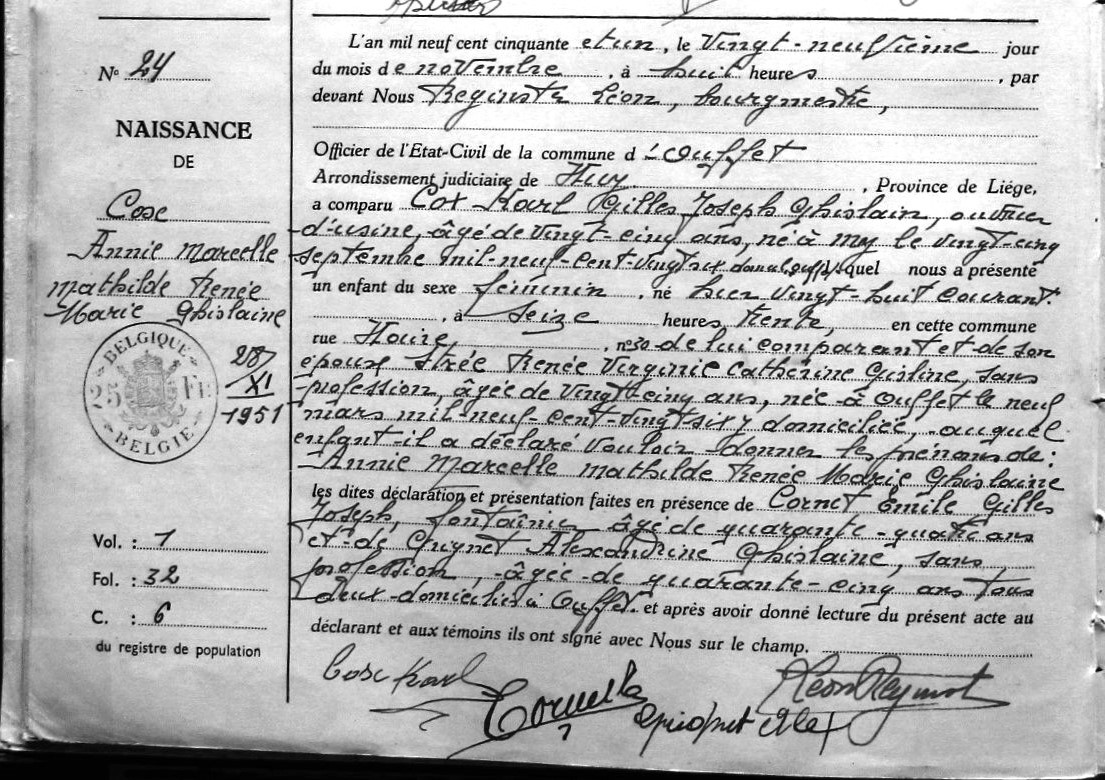 L'an mil neuf cent cinquante et un, le Vingt-neuvième jour
du mois de novembre, à huit heures, par
devant Nous Léon, bourgmestre,
Officier de l'Etat-Civil de la commune d'Ouffet
Arrondissement judiciaire de Huy, Province de Liége,
a comparu Karl Gilles Joseph Ghislain, ouvrier
d'usine, âgé de Vingt-cinq ans, né à My le vingt-cinq
septembre mil-neuf-cent-vingtsix quel nous a présenté
un enfant du sexe féminin, né hier vingt-huit courant.
, à Seize heures trente, en cette commune
rue n° 30 de lui comparant et de son
épouse Strée Renée Virginie Catherine Gisline, sans
profession, âgée de Vingt-cinq ans, née à Ouffet le neuf
mars mil-neuf-cent-vingtsix, domiciliée, auquel
enfant il a déclaré Vouloir donner les prénoms de:
Annie Marcelle Mathilde Renée Marie Ghislaine
les dites déclaration et présentation faites en présence de Cornet Emile Gilles
Joseph, fontainier âgé de quarante-quatre ans
et de Alexandrine Ghislaine, sans
profession, âgée de quarante-cinq ans tous
deux domiciliés à Ouffet. et après avoir donné lecture du présent acte au
déclarant et aux témoins ils ont signé avec Nous sur le champ.
Karl
N° 24
NAISSANCE
DE
Cox
Annie Marcelle
Mathilde Renée
Marie Ghislaine
BELGIQUE
25 Fr
BELGIE
28/XI
1951
Vol. : 1
Fol. : 32
C. : 6
du registre de population